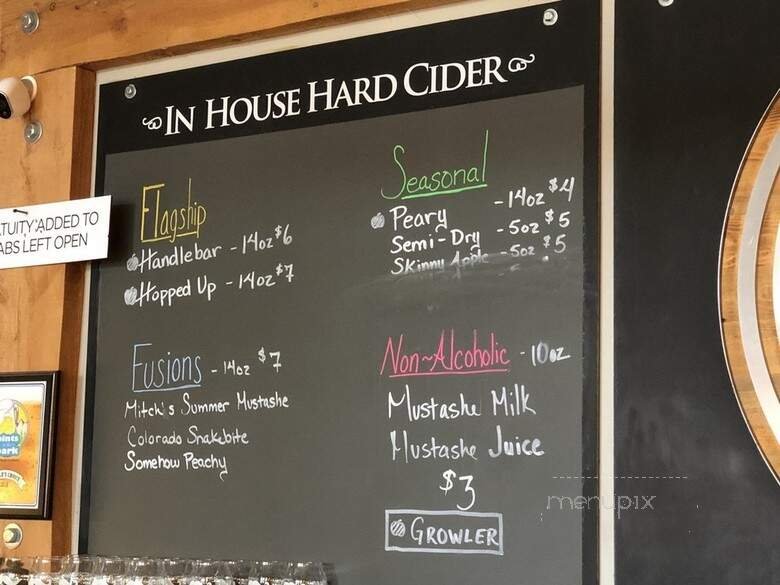 IN HOUSE HARD CIDER
TUITY ADDED TO
ABS LEFT OPEN
Flagship
Handlebar - 14oz $6
Hopped Up - 14oz $7
Seasonal
Peary - 14oz $4
Semi-Dry - 5oz $5
Skinny Apple - 5oz $5
Fusions - 14oz $7
Mitch's Summer Mustashe
Colorado Snakebite
Somehow Peachy
Non~Alcoholic - 10oz
Mustashe Milk
Mustashe Juice
$3
GROWLER
menupix